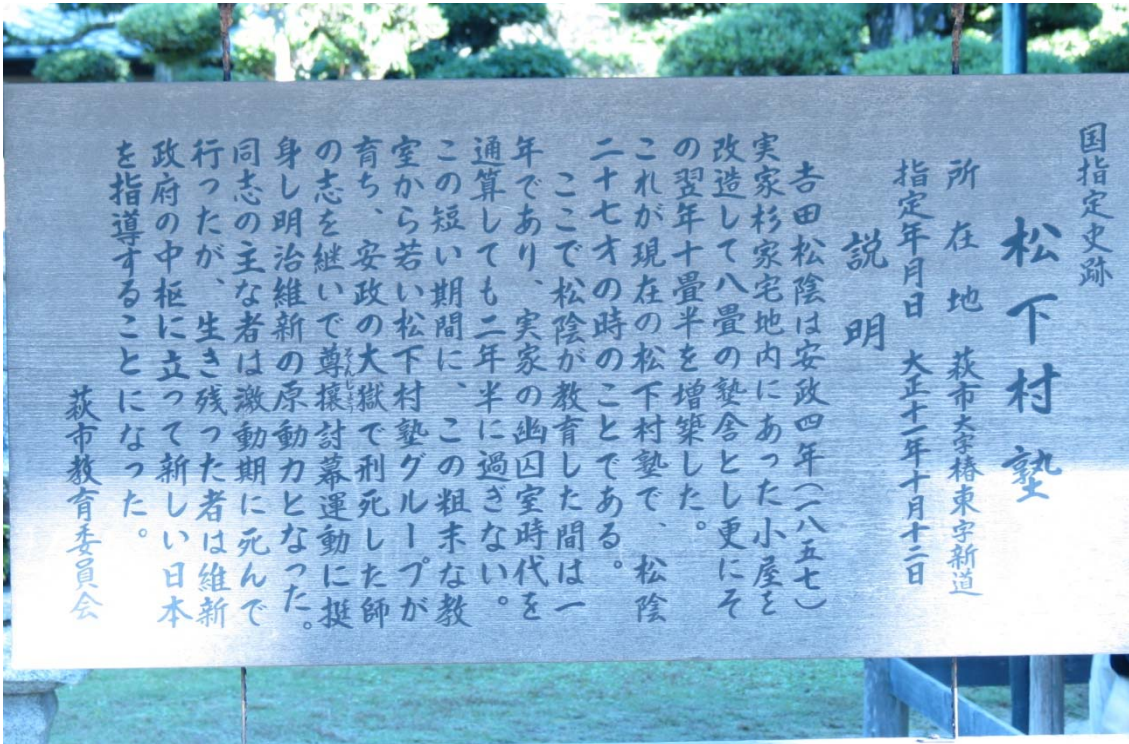 国指定史跡
松下村塾
所在地 萩市大字椿東字新道
指定年月日 大正十一年十月十二日
説明
吉田松陰は安政四年(一八五七)
実家杉家宅地内にあった小屋を
改造して八畳の塾舎とし更にそ
の翌年十畳半を増築した。
これが現在の松下村塾で、松陰
二十七才の時のことである。
ここで松陰が教育した間は一
年であり、実家の幽囚室時代を
通算しても二年半に過ぎない。
この短い期間に、この粗末な教
室から若い松下村塾グループが
育ち、安政の大獄で刑死した師
の志を継いで尊攘討幕運動に挺
そんじょう
身し明治維新の原動力となった。
同志の主な者は激動期に死んで
行ったが、生き残った者は維新
政府の中枢に立って新しい日本
を指導することになった。
萩市教育委員会